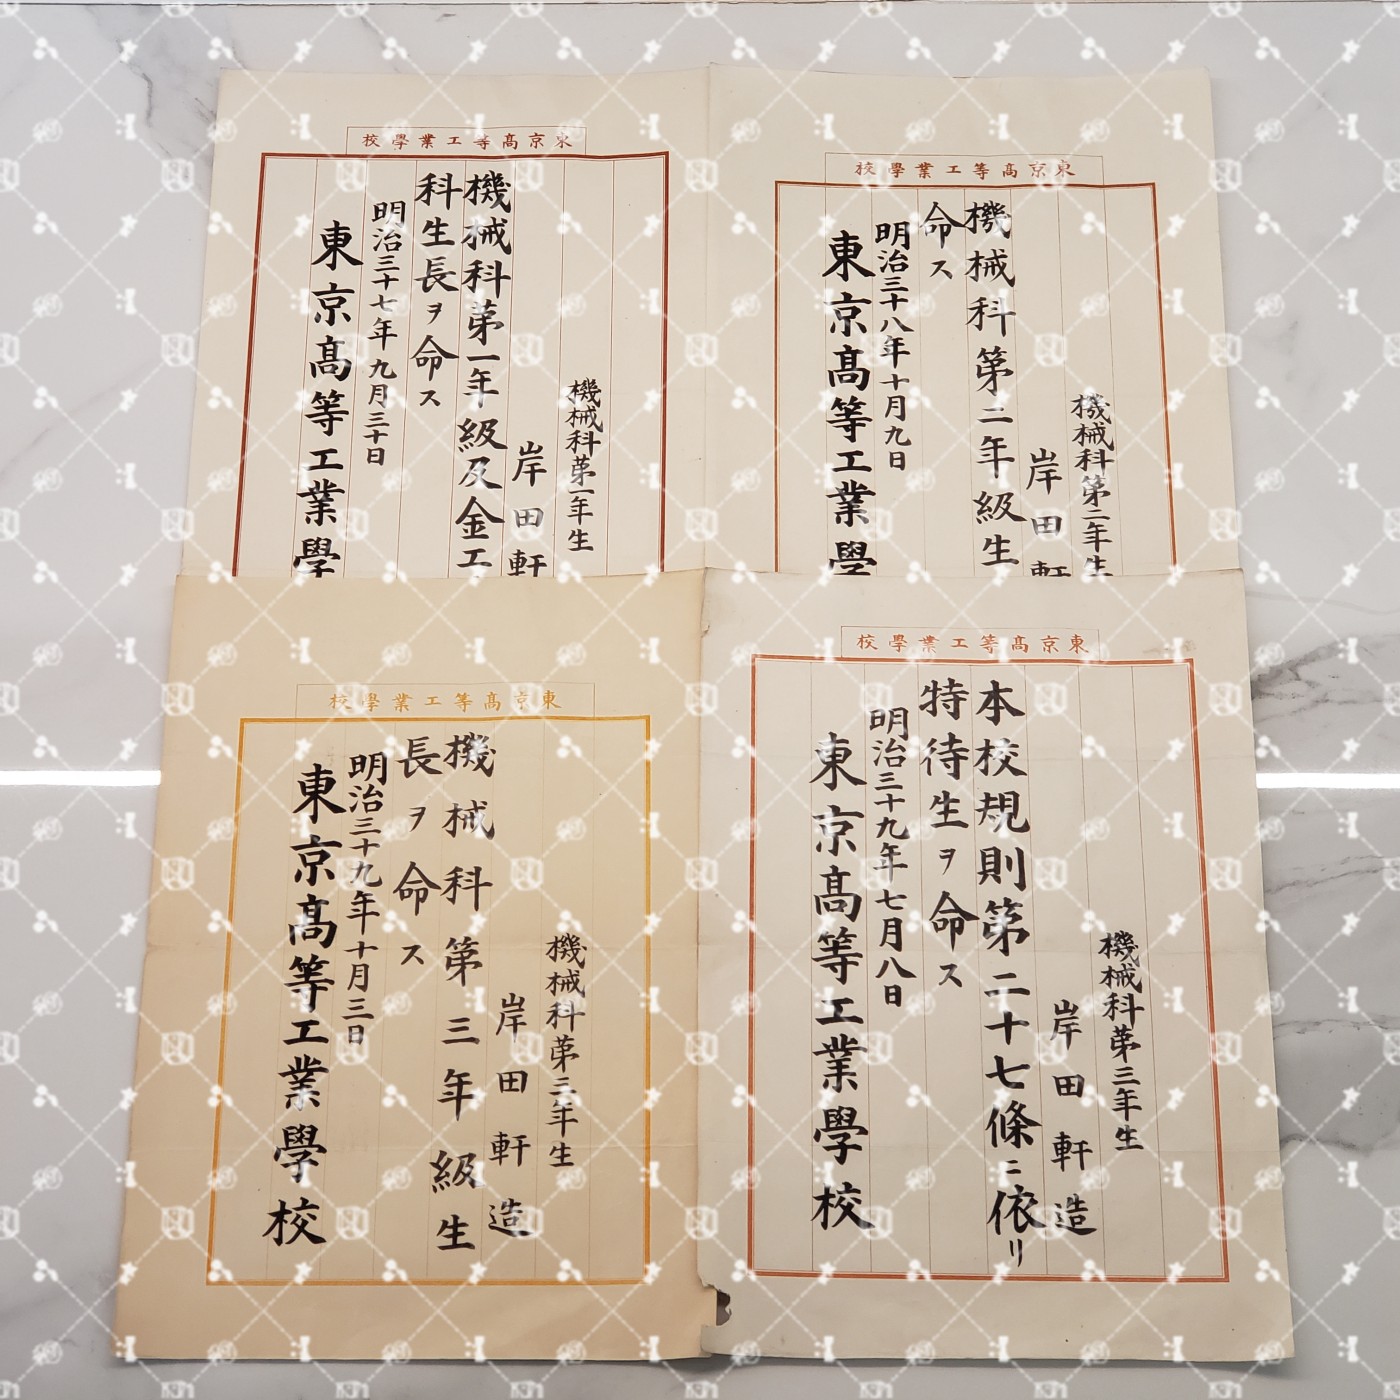 東京高等工業學校
機械科第一年生
岸田軒
機械科第一年級及金工
科生長ヲ命ス
明治三十七年九月三十日
東京高等工業學
東京高等工業學校
機械科第二年生
岸田軒
機械科第二年級生
命ス
明治三十八年十月九日
東京高等工業學
東京高等工業學校
機械科第三年生
岸田軒造
機械科第三年級生
長ヲ命ス
明治三十九年十月三日
東京高等工業學校
東京高等工業學校
機械科第三年生
岸田軒造
本校規則第二十七條ニ依リ
特待生ヲ命ス
明治三十九年七月八日
東京高等工業學校